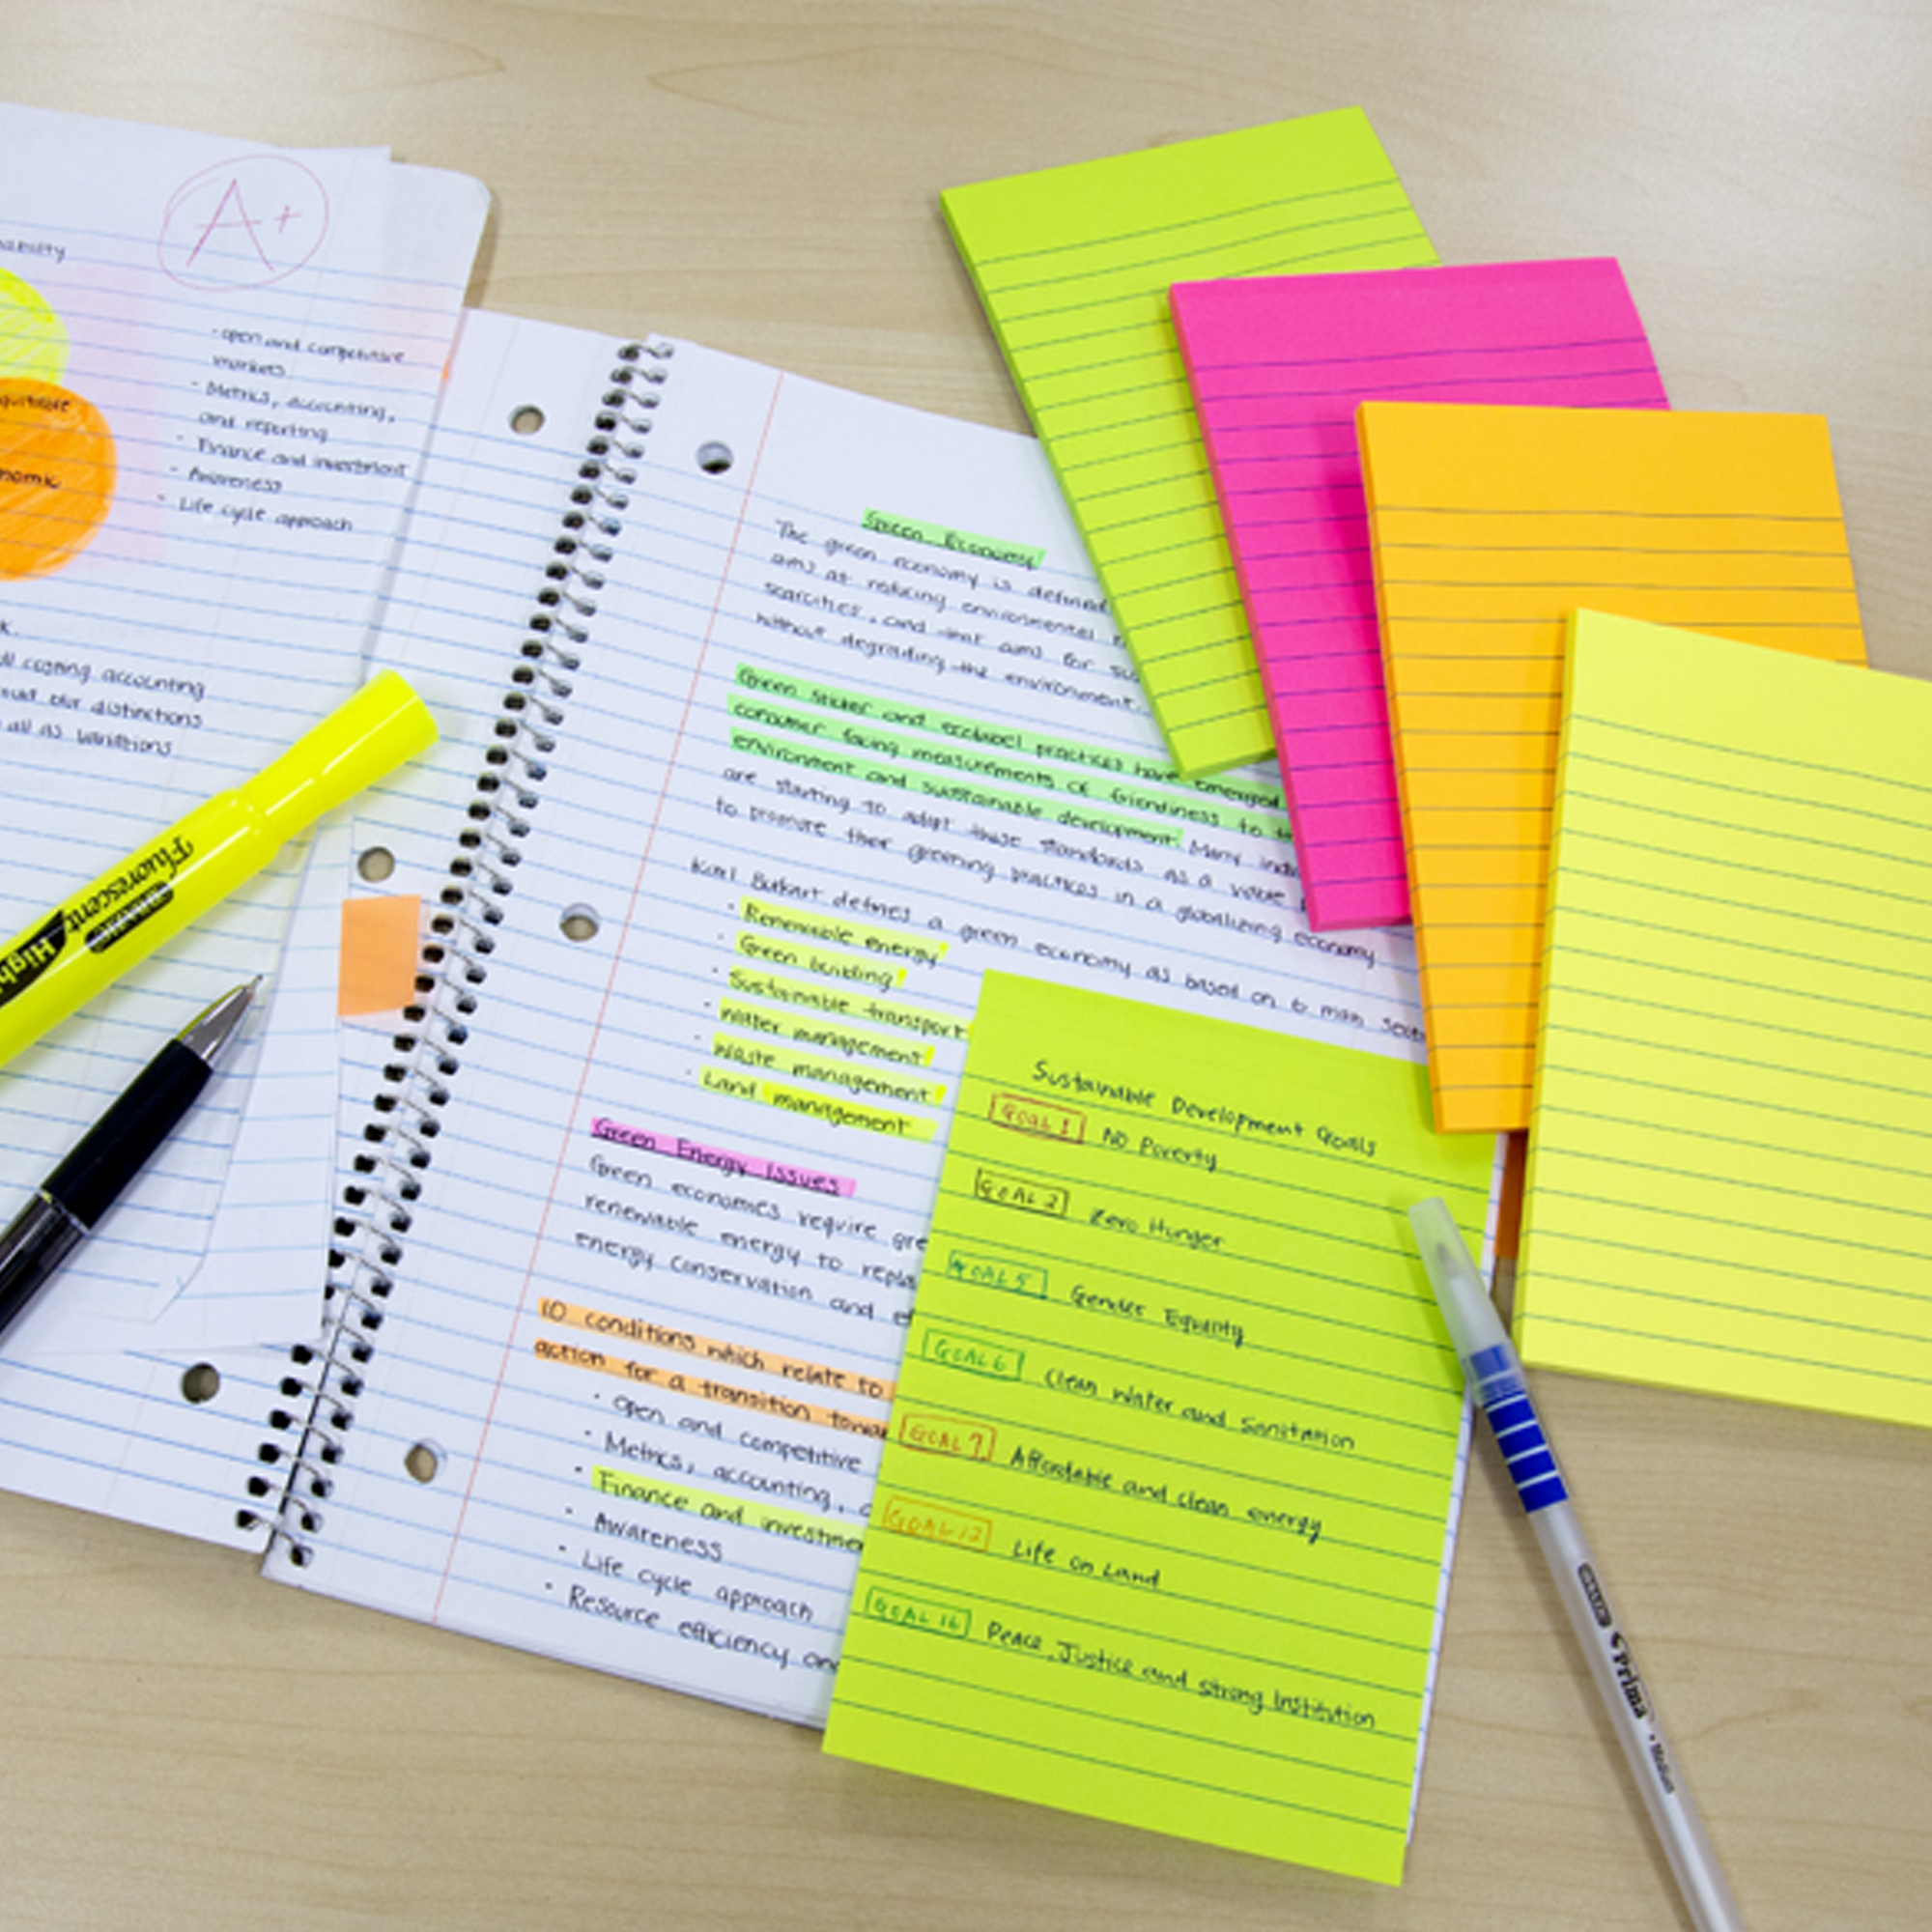 A+
- open and competitive
markets
- Metrics, accounting,
and reporting
- Finance and investment
- Awareness
- Life cycle approach
costing accounting
our distinctions
all as variations
Fluorescent
Green Economy
The green economy is defined
aims at reducing environmental
scarcities, and that aims for
without degrading the environment.
Green sticker and ecolabel practices have emerged
consumer facing measurements of friendliness to
environment and sustainable development. Many
are starting to adopt these standards as a viable
to promote their greening practices in a globalizing economy
Karl Burkart defines a green economy as based on 6 main
- Renewable energy
- Green building
- Sustainable transport
- Water management
- Waste management
- Land management
Green Energy Issues
Green economies require
renewable energy to
energy conservation and
10 conditions which relate to
action for a transition
- Open and competitive
- Metrics, accounting,
- Finance and
- Awareness
- Life cycle approach
- Resource efficiency
Sustainable Development Goals
GOAL 1 No Poverty
GOAL 2 Zero Hunger
GOAL 5 Gender Equality
GOAL 6 Clean Water and Sanitation
GOAL 7 Affordable and clean energy
GOAL 12 Life on Land
GOAL 16 Peace, Justice and strong Institution
Prima